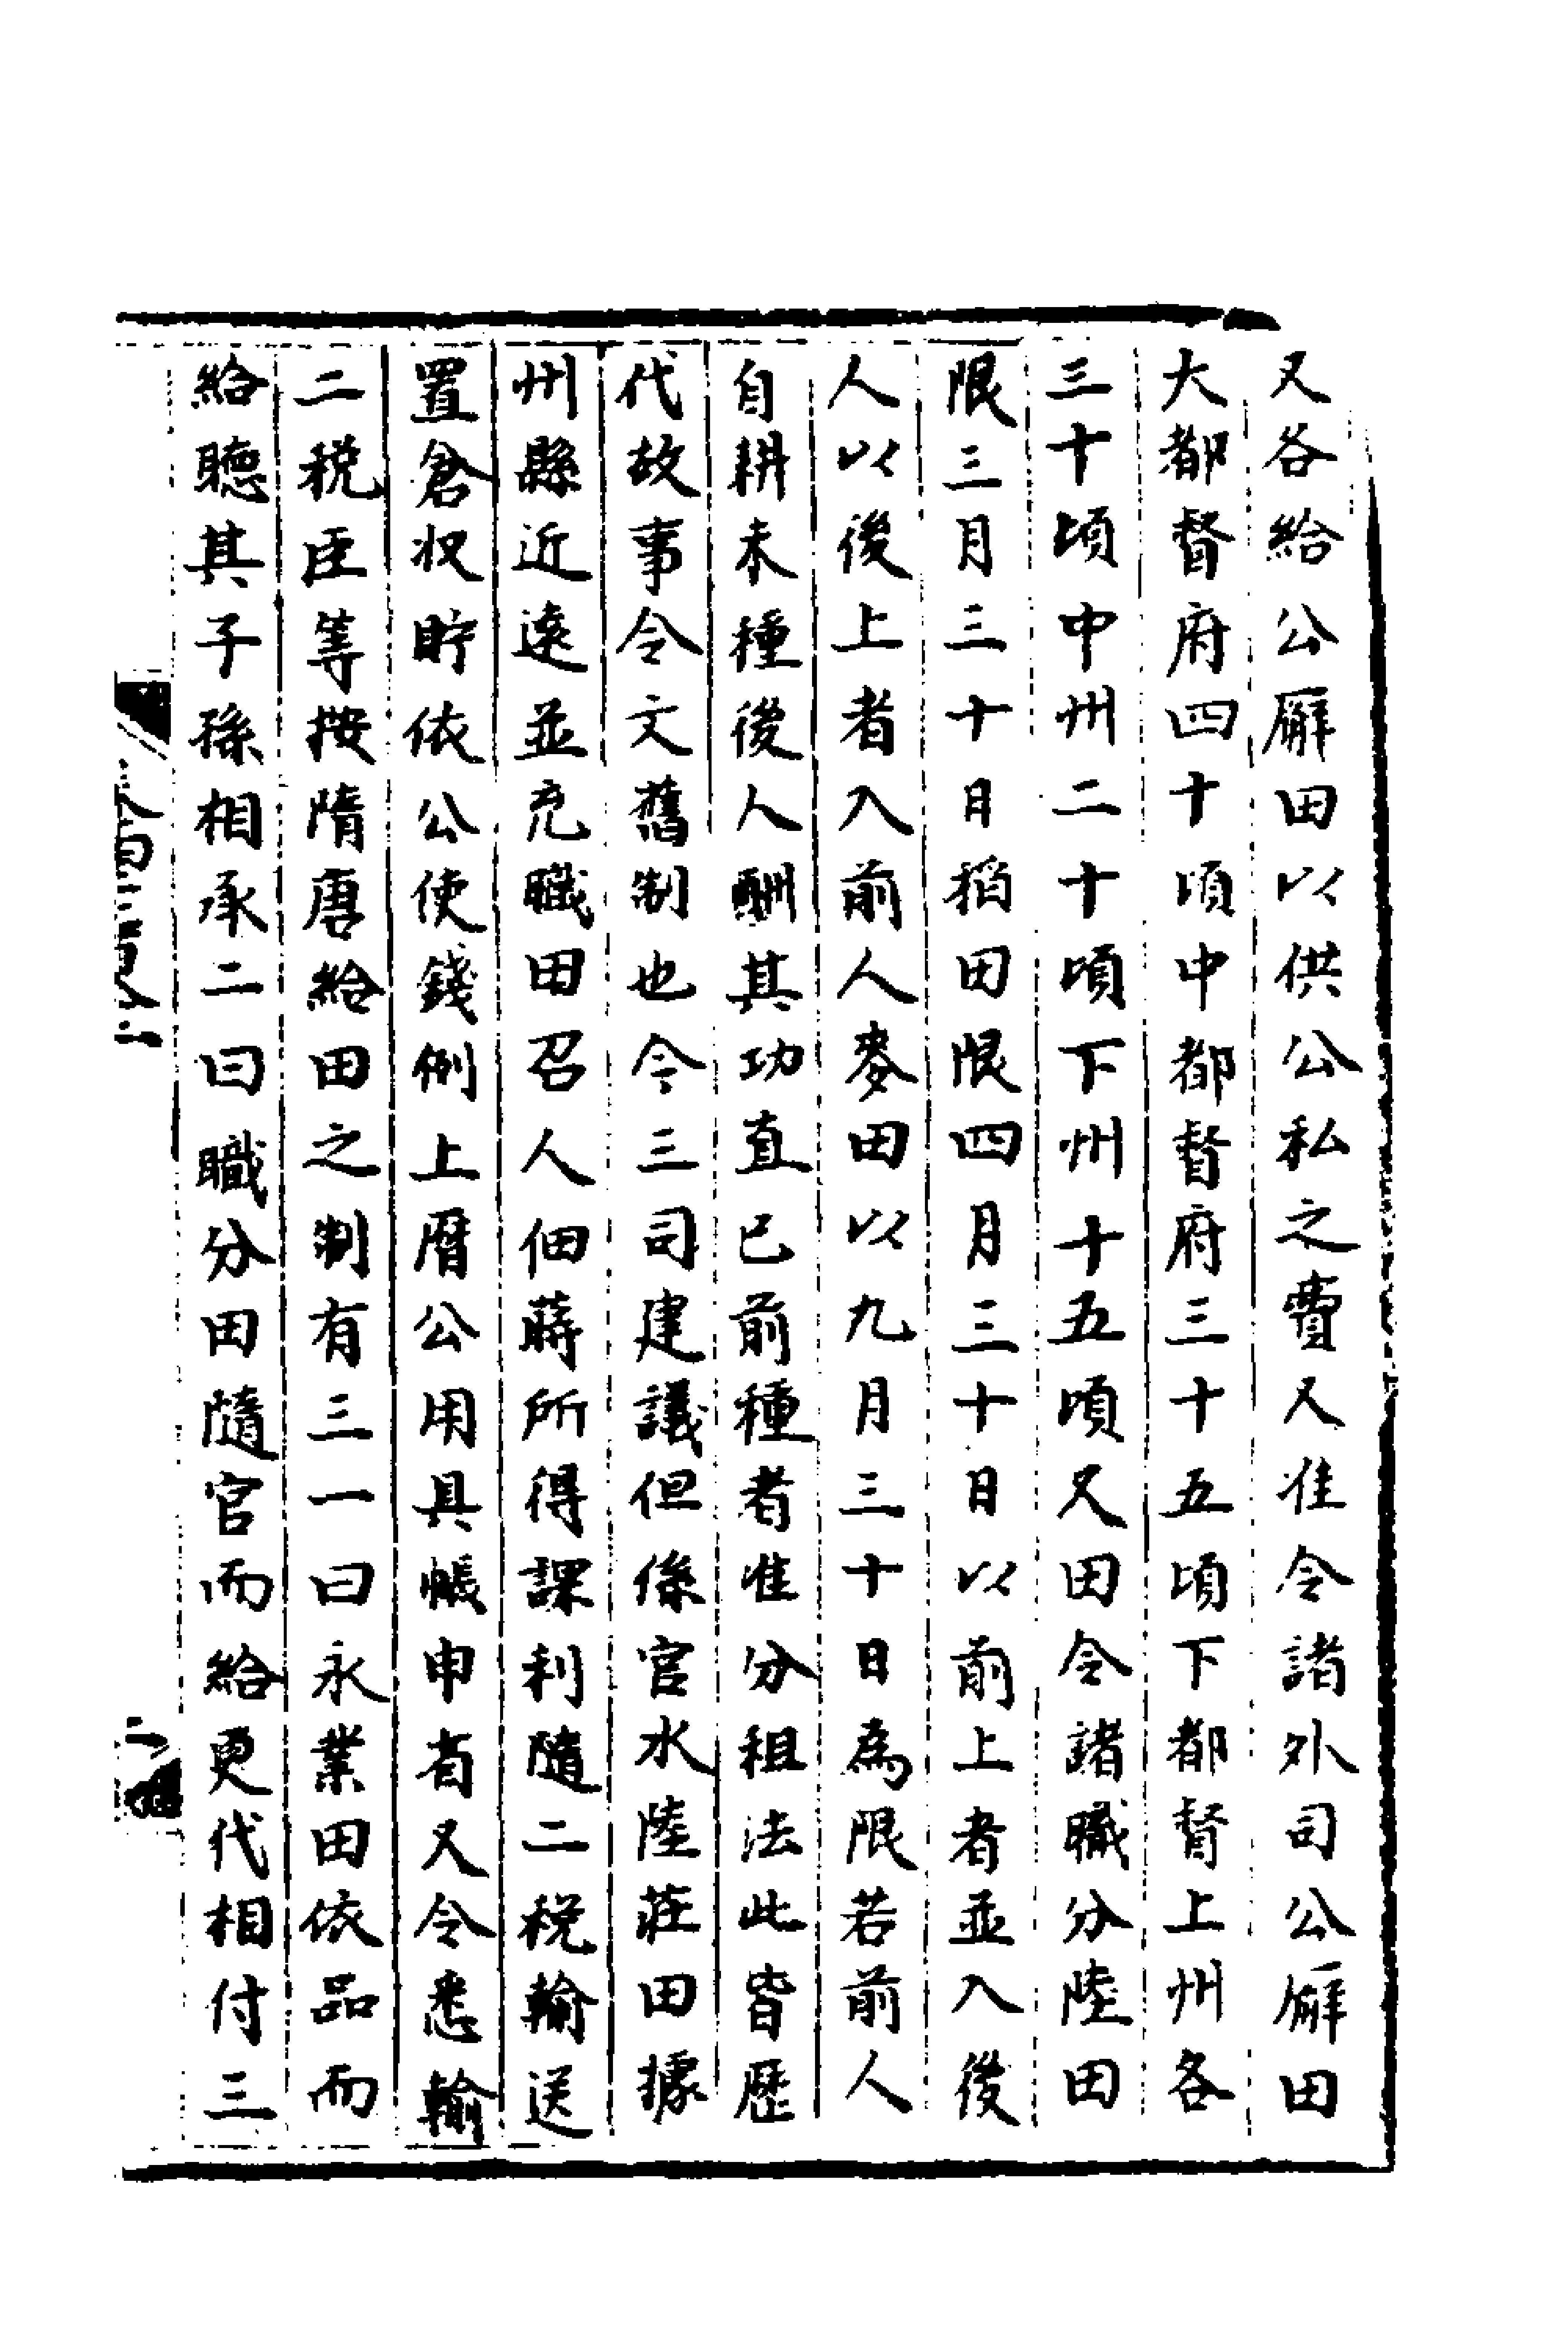 又各給公廨田以供公私之費又准令諸外司公廨田
大都督府四十頃中都督府三十五頃下都督上州各
三十頃中州二十頃下州十五頃又田令諸職分陸田
限三月三十日稻田限四月三十日以前上者並入後
人以後上者入前人麥田以九月三十日為限若前人
自耕未種後人酬其功直已前種者准分租法此皆歷
代故事令文舊制也今三司建議但係官水陸莊田據
州縣近遠並充職田召人佃蒔所得課利隨二稅輸送
置倉収貯依公使錢例上曆公用具帳申省又令悉輸
二稅臣等按隋唐給田之制有三一曰永業田依品而
給聽其子孫相承二曰職分田隨官而給更代相付三